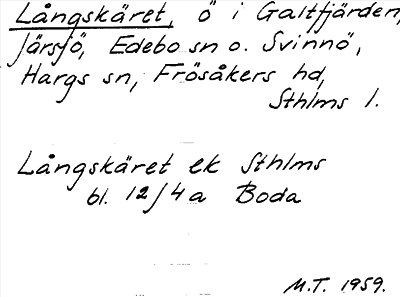 Långskäret, ö i Galtfjärden,
Järsjö, Edebo sn o. Svinnö,
Hargs sn, Frösåkers hd,
Sthlms l.
Långskäret ek Sthlms
bl. 12/4a Boda
M.T. 1959.